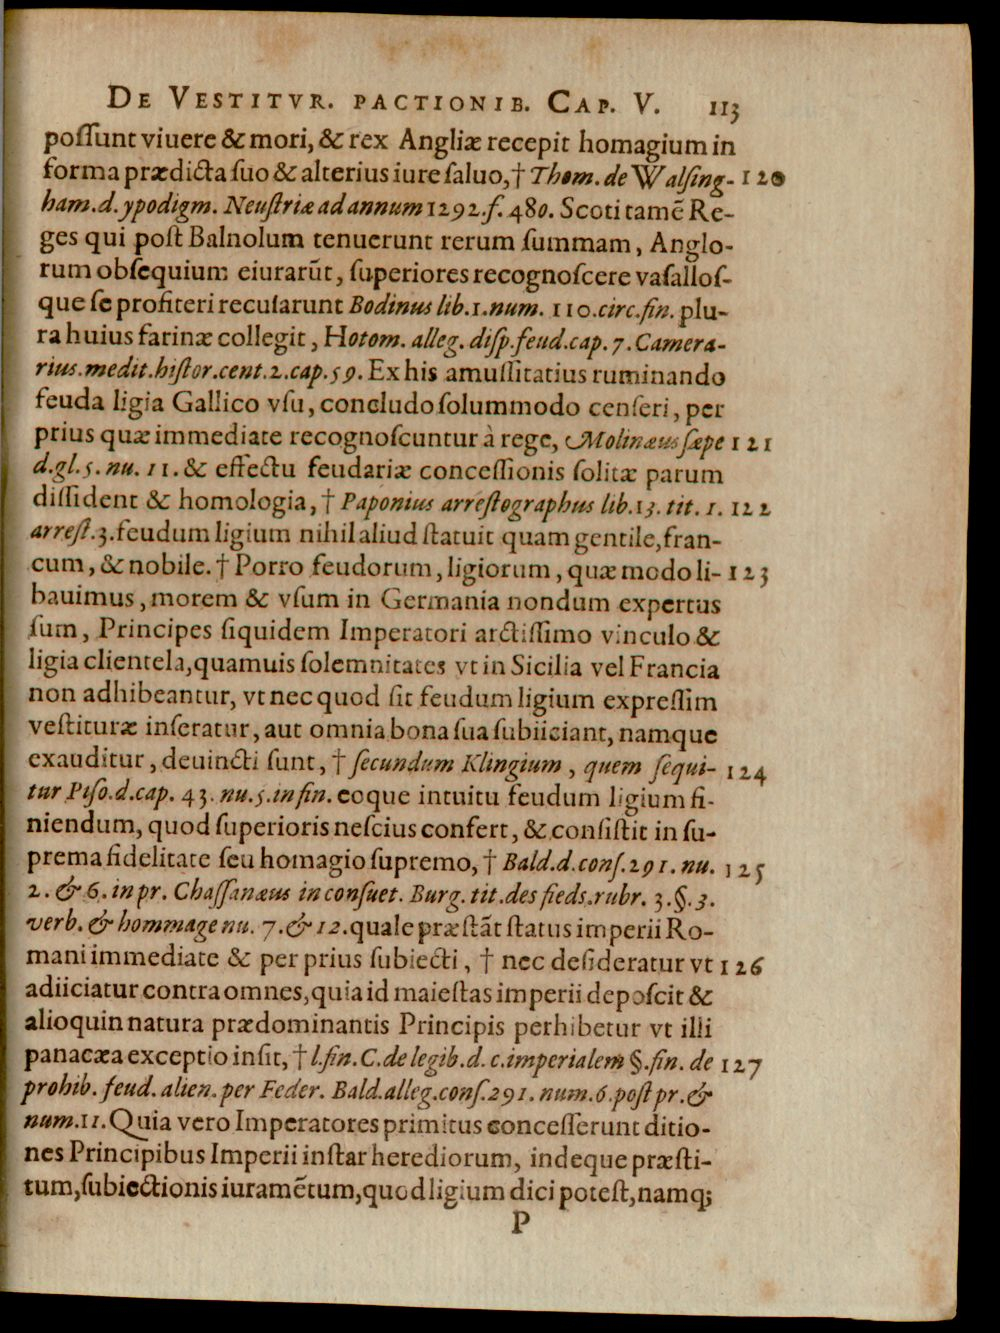 DE VESTITVR. PACTIONIB. CAP. V. 113
possunt viuere & mori, & rex Angliæ recepit homagium in
forma prædicta suo & alterius iure saluo, † Thom. de Walsing- 120
ham. d. ypodigm. Neustriæ ad annum 1292. f. 480. Scoti tamē Re-
ges qui post Balnolum tenuerunt rerum summam, Anglo-
rum obsequium eiurarūt, superiores recognoscere vasallos-
que se profiteri recusarunt Bodinus lib. 1. num. 110. circ. fin. plu-
ra huius farinæ collegit, Hotom. alleg. disp. feud. cap. 7. Camera-
rius. medit. histor. cent. 2. cap. 59. Ex his amussitatius ruminando
feuda ligia Gallico vsu, concludo solummodo censeri, per
prius quæ immediate recognoscuntur à rege, Molinæus sæpe 121
d. gl. 5. nu. 11. & effectu feudariæ concessionis solitæ parum
dissident & homologia, † Paponius arrestographus lib. 13. tit. 1. 122
arrest. 3. feudum ligium nihil aliud statuit quam gentile, fran-
cum, & nobile. † Porro feudorum, ligiorum, quæ modo li- 123
bauimus, morem & vsum in Germania nondum expertus
sum, Principes siquidem Imperatori arctissimo vinculo &
ligia clientela, quamuis solemnitates vt in Sicilia vel Francia
non adhibeantur, vt nec quod sit feudum ligium expressim
vestituræ inseratur, aut omnia bona sua subiiciant, namque
exauditur, deuincti sunt, † secundum Klingium, quem sequi- 124
tur Piso. d. cap. 43. nu. 5. in fin. eoque intuitu feudum ligium fi-
niendum, quod superioris nescius confert, & consistit in su-
prema fidelitate seu homagio supremo, † Bald. d. cons. 291. nu. 125
2. & 6. in pr. Chassanæus in consuet. Burg. tit. des fieds. rubr. 3. §. 3.
verb. & hommage nu. 7. & 12. quale præstāt status imperii Ro-
mani immediate & per prius subiecti, † nec desideratur vt 126
adiiciatur contra omnes, quia id maiestas imperii deposcit &
alioquin natura prædominantis Principis perhibetur vt illi
panacæa exceptio insit, † l. fin. C. de legib. d. c. imperialem §. fin. de 127
prohib. feud. alien. per Feder. Bald. alleg. cons. 291. num. 6. post pr. &
num. 11. Quia vero Imperatores primitus concesserunt ditio-
nes Principibus Imperii instar herediorum, indeque præsti-
tum, subiectionis iuramētum, quod ligium dici potest, namq;
P